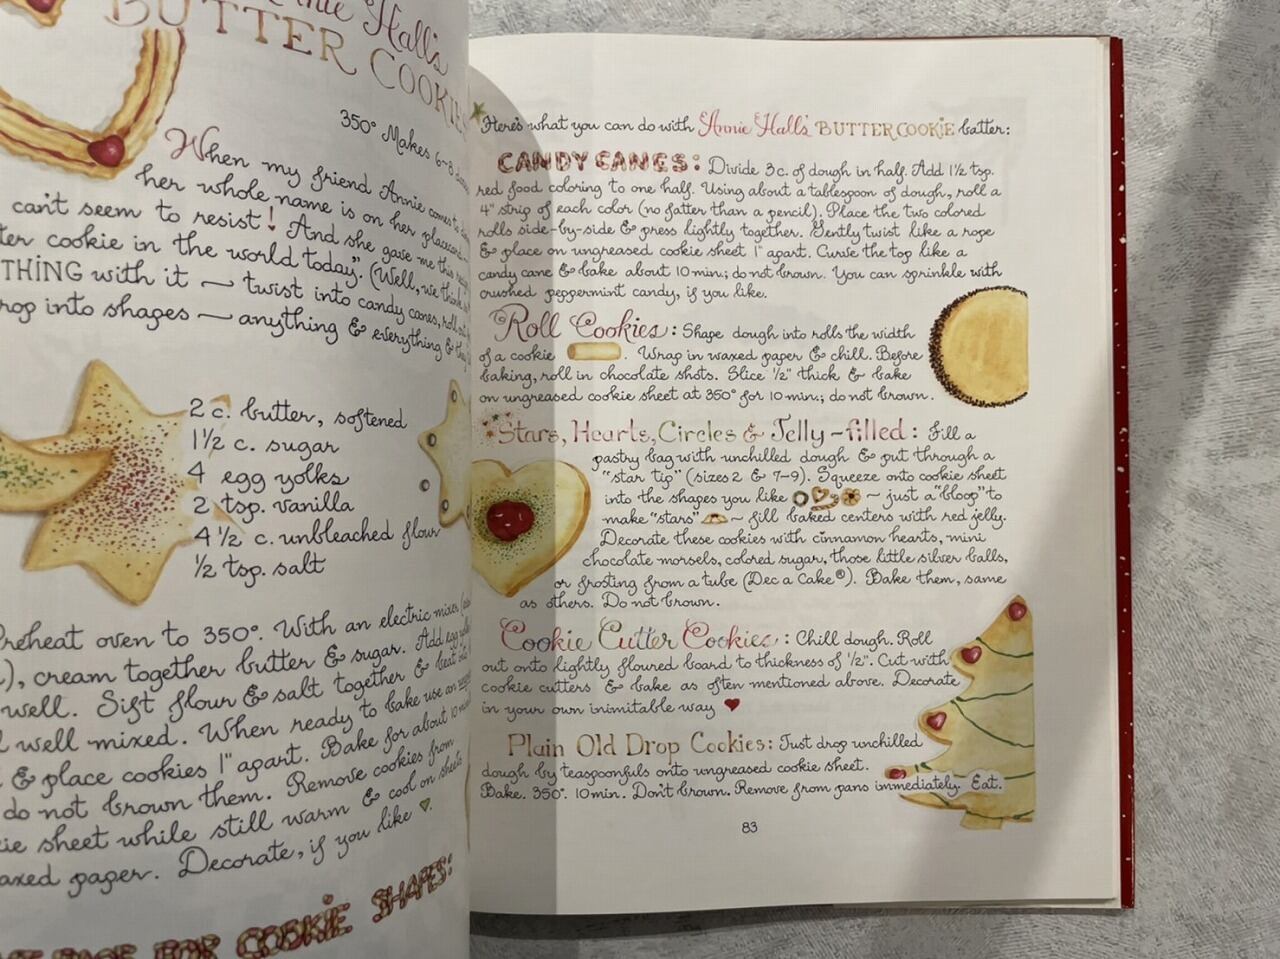 Annie Hall's
BUTTER COOKIES
350° Makes 6-8
When my friend Annie comes to
her whole name is on her placecard
can't seem to resist! And she gave me this
cookie in the world today". (Well, we think
THING with it ~ twist into candy canes, roll
into shapes ~ anything & everything &
2 c. butter, softened
1½ c. sugar
4 egg yolks
2 tsp. vanilla
4 ½ c. unbleached flour
½ tsp. salt
Preheat oven to 350°. With an electric mixer
), cream together butter & sugar. Add egg
well. Sift flour & salt together & beat
well mixed. When ready to bake use an
& place cookies 1" apart. Bake for about 10 min
do not brown them. Remove cookies from
sheet while still warm & cool on
paper. Decorate, if you like
FOR COOKIE SHAPES:
Here's what you can do with Annie Hall's BUTTER COOKIE batter:
CANDY CANES: Divide 3 c. of dough in half. Add 1½ tsp.
red food coloring to one half. Using about a tablespoon of dough, roll a
4" strip of each color (no fatter than a pencil). Place the two colored
rolls side-by-side & press lightly together. Gently twist like a rope
& place on ungreased cookie sheet 1" apart. Curve the top like a
candy cane & bake about 10 min.; do not brown. You can sprinkle with
crushed peppermint candy, if you like.
Roll Cookies: Shape dough into rolls the width
of a cookie . Wrap in waxed paper & chill. Before
baking, roll in chocolate shots. Slice ½" thick & bake
on ungreased cookie sheet at 350° for 10 min.; do not brown.
Stars, Hearts, Circles & Jelly-filled: Fill a
pastry bag with unchilled dough & put through a
"star tip" (sizes 2 & 7-9). Squeeze onto cookie sheet
into the shapes you like ~ just a "bloop" to
make "stars" ~ fill baked centers with red jelly.
Decorate these cookies with cinnamon hearts, mini
chocolate morsels, colored sugar, those little silver balls,
or frosting from a tube (Dec a Cake®). Bake them, same
as others. Do not brown.
Cookie Cutter Cookies: Chill dough. Roll
out onto lightly floured board to thickness of ½". Cut with
cookie cutters & bake as often mentioned above. Decorate
in your own inimitable way ♥
Plain Old Drop Cookies: Just drop unchilled
dough by teaspoonfuls onto ungreased cookie sheet.
Bake. 350°. 10 min. Don't brown. Remove from pans immediately. Eat.
83